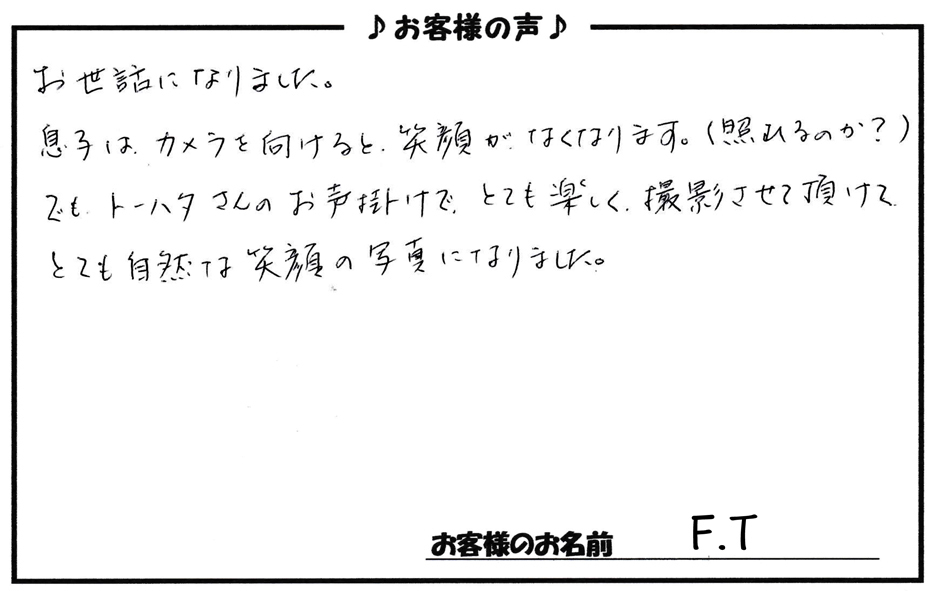 ♪お客様の声♪
お世話になりました。
息子は、カメラを向けると、笑顔がなくなります。(照れるのか?)
でも、トーハタさんのお声掛けで、とても楽しく、撮影させて頂けて、
とても自然な笑顔の写真になりました。
お客様のお名前 F.T